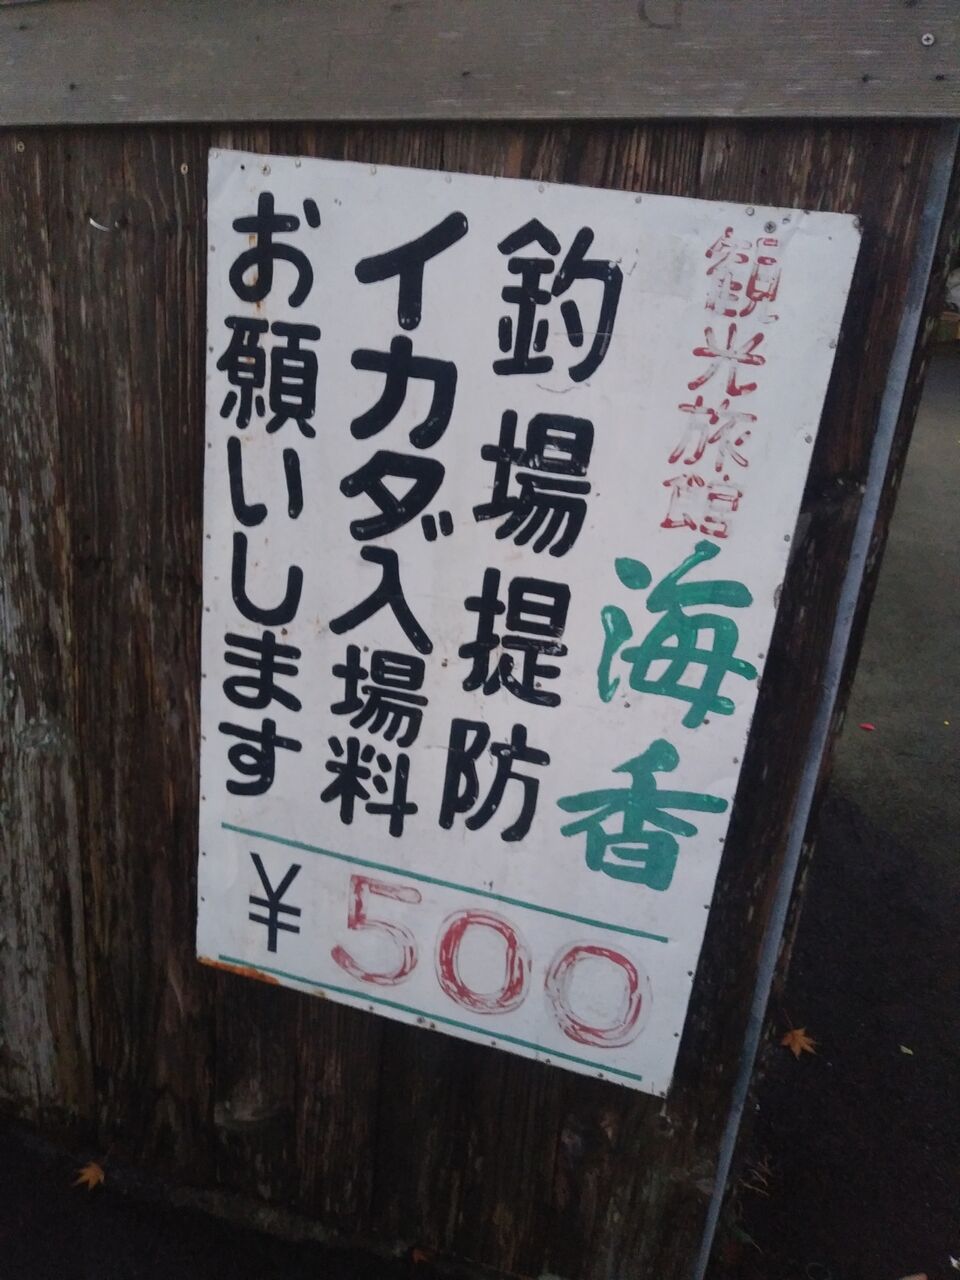 観光旅館 海香
釣場提防
イカダ入場料
お願いします
￥500